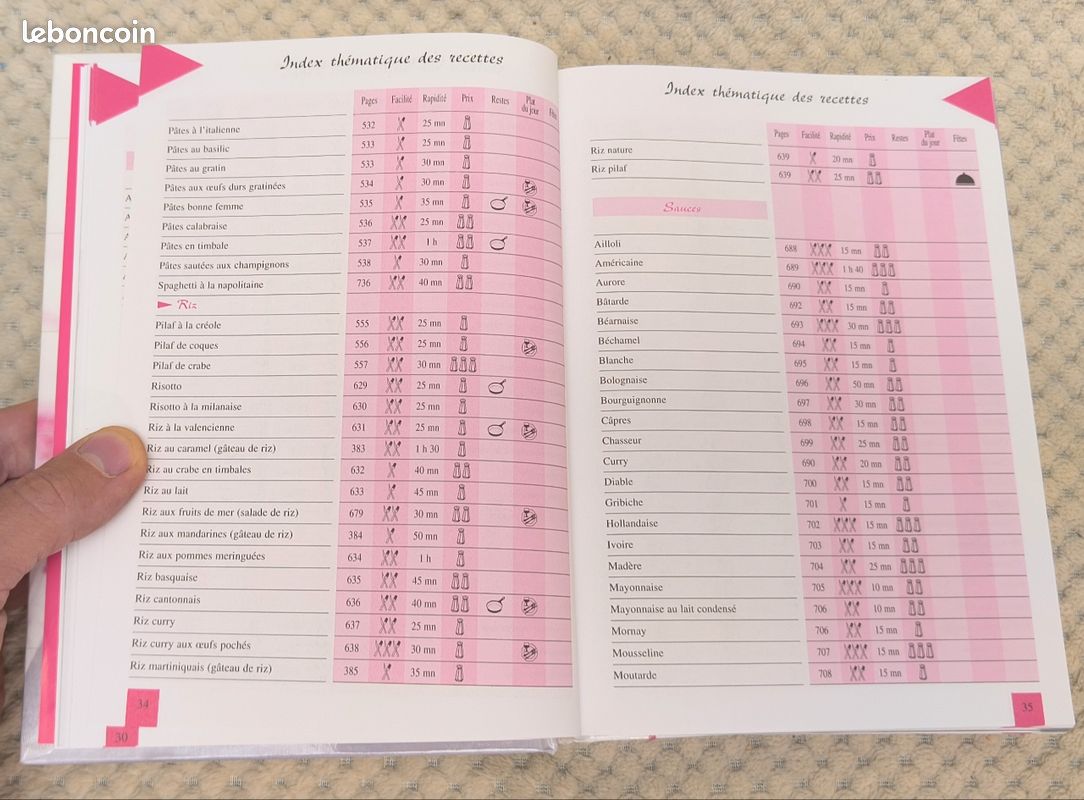 leboncoin
Index thématique des recettes
Pages Facilité Rapidité Prix Restes Plat du jour
Pâtes à l'italienne 532 25 mn
Pâtes au basilic 533 25 mn
Pâtes au gratin 533 30 mn
Pâtes aux œufs durs gratinées 534 30 mn
Pâtes bonne femme 535 35 mn
Pâtes calabraise 536 25 mn
Pâtes en timbale 537 1 h
Pâtes sautées aux champignons 538 30 mn
Spaghetti à la napolitaine 736 40 mn
Riz
Pilaf à la créole 555 25 mn
Pilaf de coques 556 25 mn
Pilaf de crabe 557 30 mn
Risotto 629 25 mn
Risotto à la milanaise 630 25 mn
Riz à la valencienne 631 25 mn
Riz au caramel (gâteau de riz) 383 1 h 30
Riz au crabe en timbales 632 40 mn
Riz au lait 633 45 mn
Riz aux fruits de mer (salade de riz) 679 30 mn
Riz aux mandarines (gâteau de riz) 384 50 mn
Riz aux pommes meringuées 634 1 h
Riz basquaise 635 45 mn
Riz cantonnais 636 40 mn
Riz curry 637 25 mn
Riz curry aux œufs pochés 638 30 mn
Riz martiniquais (gâteau de riz) 385 35 mn
34
30
Index thématique des recettes
Pages Facilité Rapidité Prix Restes Plat du jour Fêtes
Riz nature 639 20 mn
Riz pilaf 639 25 mn
Sauces
Ailloli 688 15 mn
Américaine 689 1 h 40
Aurore 690 15 mn
Bâtarde 692 15 mn
Béarnaise 693 30 mn
Béchamel 694 15 mn
Blanche 695 15 mn
Bolognaise 696 50 mn
Bourguignonne 697 30 mn
Câpres 698 15 mn
Chasseur 699 25 mn
Curry 690 20 mn
Diable 700 15 mn
Gribiche 701 15 mn
Hollandaise 702 15 mn
Ivoire 703 15 mn
Madère 704 25 mn
Mayonnaise 705 10 mn
Mayonnaise au lait condensé 706 10 mn
Mornay 706 15 mn
Mousseline 707 15 mn
Moutarde 708 15 mn
35